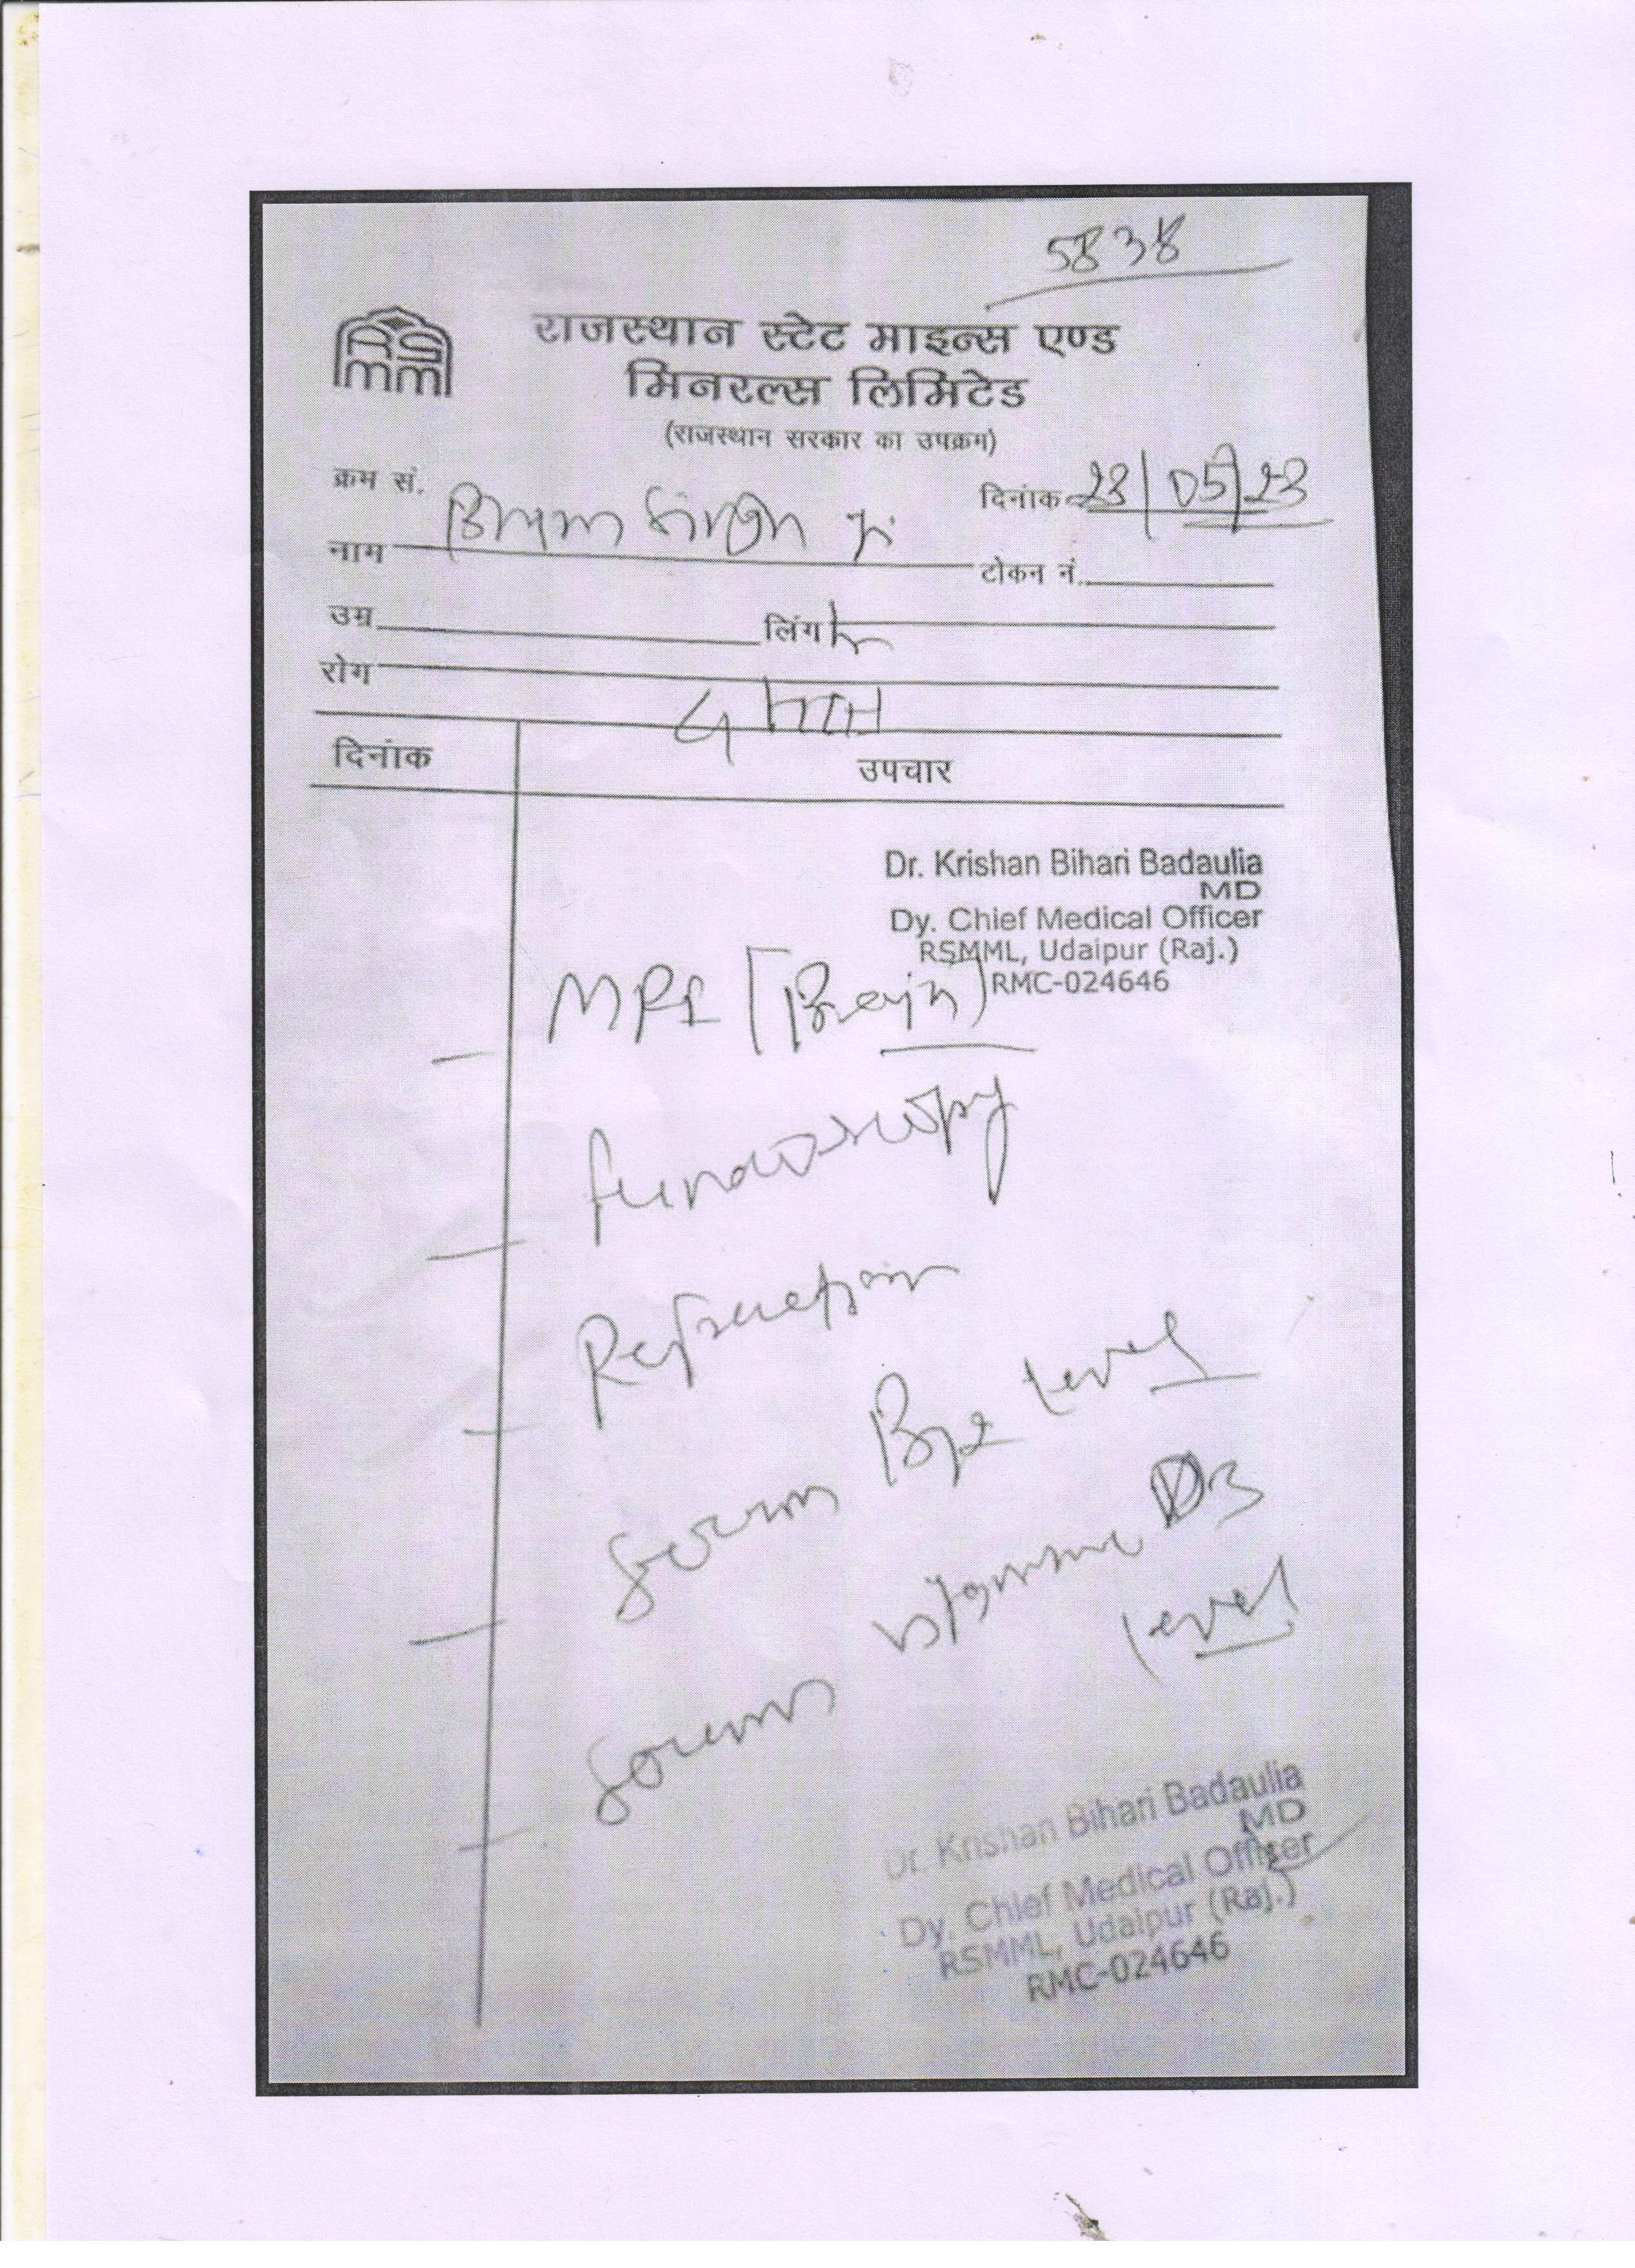 5838
RSMM
राजस्थान स्टेट माइन्स एण्ड
मिनरल्स लिमिटेड
(राजस्थान सरकार का उपक्रम)
क्रम सं. दिनांक 23/05/23
नाम Singh Ji
टोकन नं.
उम्र लिंग
रोग
दिनांक उपचार
Dr. Krishan Bihari Badaulia
MD
Dy. Chief Medical Officer
RSMML, Udaipur (Raj.)
RMC-024646
— MRI [Brain]
— fundoscopy
— Refraction
— Serum B12 level
— Serum vitamine D3
level
Dr. Krishan Bihari Badaulia
MD
Dy. Chief Medical Officer
RSMML, Udaipur (Raj.)
RMC-024646